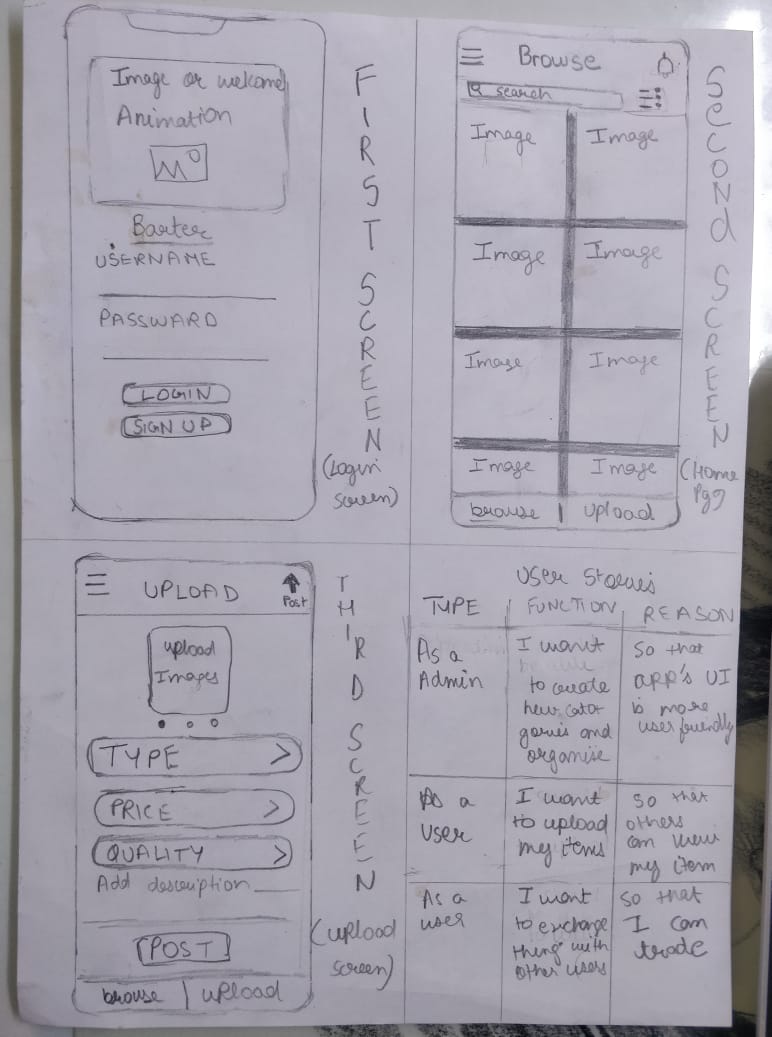 Image or welcome
Animation
Barter
USERNAME
PASSWARD
LOGIN
SIGN UP
FIRST SCREEN
(Login
screen)
Browse
search
Image Image
Image Image
Image Image
Image Image
browse | upload
SecoNd SCREEN
(Home
Pg)
UPLOAD
Post
upload
Images
TYPE >
PRICE >
QUALITY >
Add description
POST
browse | upload
THIRD SCREEN
(upload
screen)
User Stories
TYPE FUNCTION REASON
As a
Admin
I want
to create
new cator
gories and
organise
so that
app's UI
is more
user friendly
As a
user
I want
to upload
my items
so that
others
can view
my item
As a
user
I want
to exchange
thing with
other users
so that
I can
trade